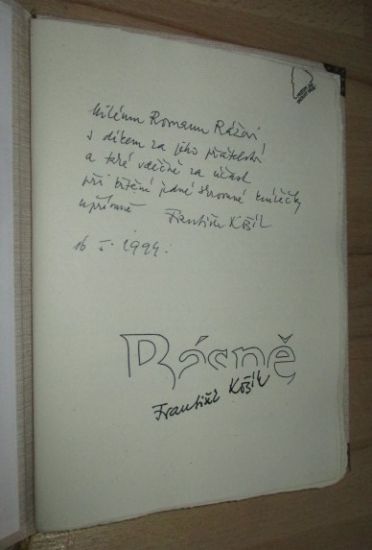 Milému Romanu Rážovi
s díkem za jeho přátelství
a také vděčně za účast
při křtění jedné skromné knížečky
upřímně František Kožík
16 I. 1994.
Básně
František Kožík